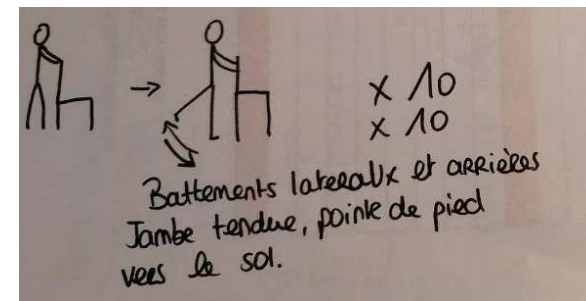 x 10
x 10
Battements lateraux et arrières
Jambe tendue, pointe de pied
vers le sol.